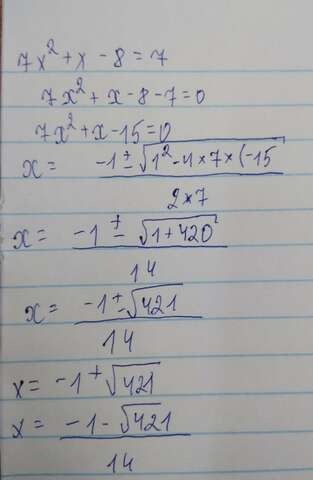 7x² + x - 8 = 7
7x² + x - 8 - 7 = 0
7x² + x - 15 = 0
x = -1 ± √1² - 4 × 7 × (-15
2 × 7
x = -1 ± √1 + 420
14
x = -1 ± √421
14
x = -1 + √421
x = -1 - √421
14